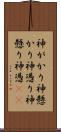 神がかり神懸
かり神憑り神
懸り神憑